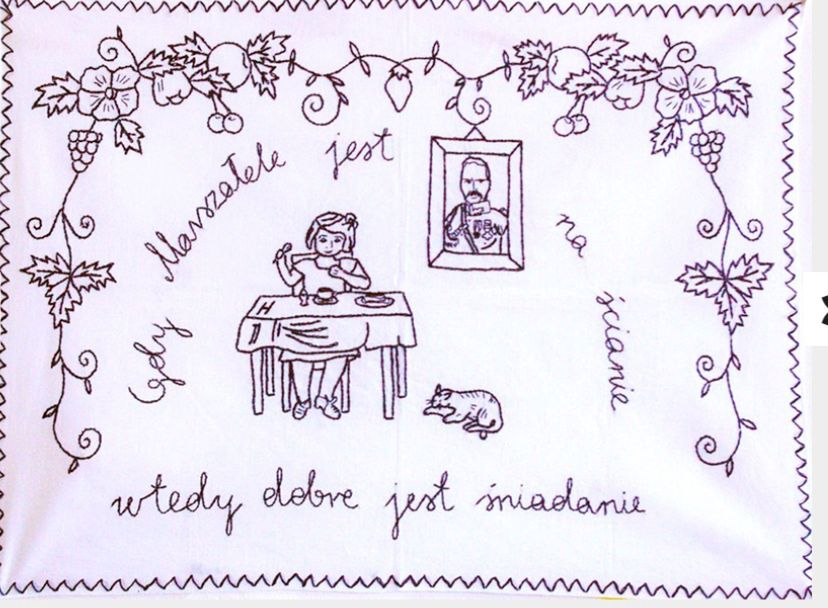 Gdy Marszałek jest na ścianie
wtedy dobre jest śniadanie